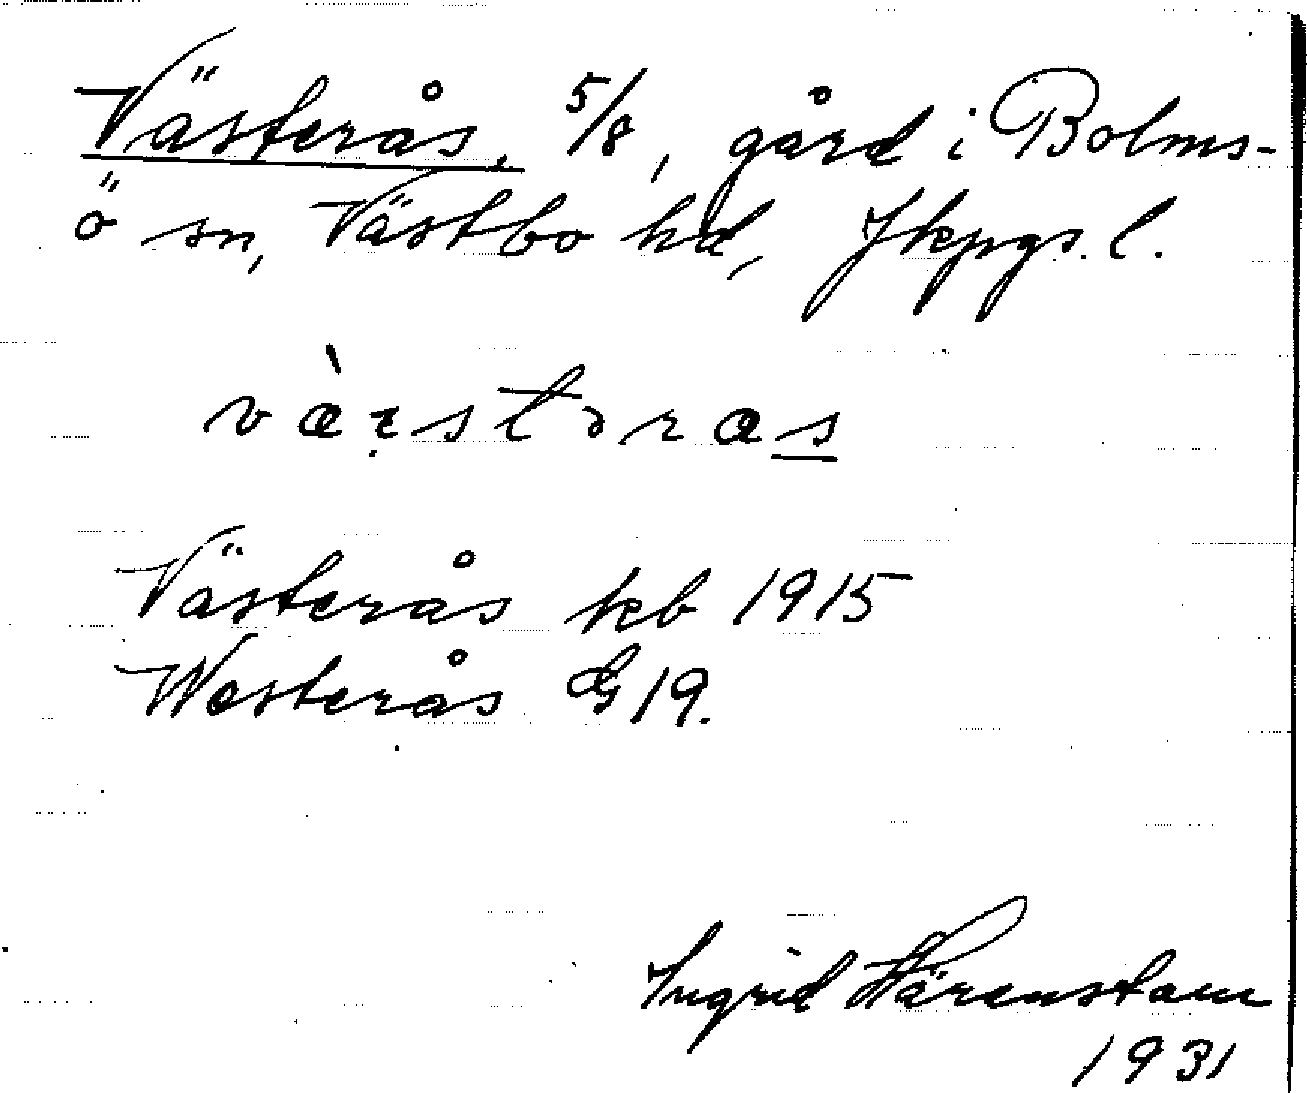 Västerås, 5/8, gård i Bolms-
ö sn, Västbo hd, Jkpgs. l.
Västerås kb 1915
Westerås G 19.
Ingrid Härenstam
1931